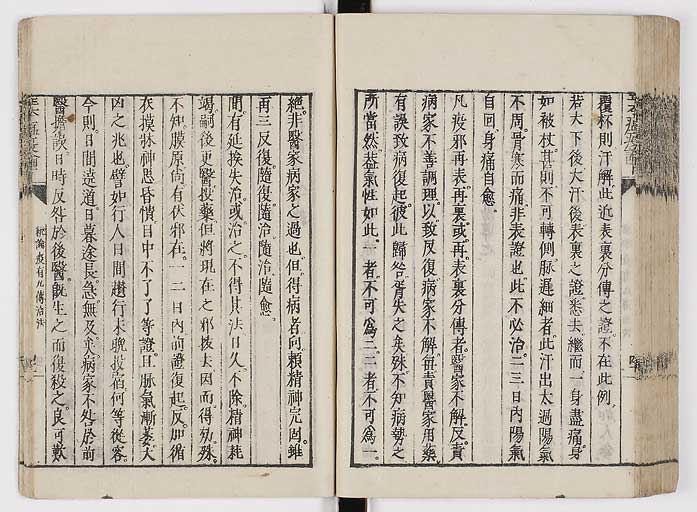 覆杯則汗解此近表裏分傳之證不在此例
若大下後大汗後表裏之證悉去繼而一身盡痛身
如被杖甚則不可轉側脉遲細者此汗出太過陽氣
不周骨寒而痛非表證也此不必治二三日內陽氣
自回身痛自愈
凡疫邪再表再裏或再表裏分傳者醫家不解反責
病家不善調理以致反復病家不解每責醫家用藥
有誤致病復起彼此歸咎胥失之矣殊不知病勢之
所當然葢氣性如此一者不可爲二二者不可爲一
絶非醫家病家之過也但得病者向賴精神完固雖
再三反復隨復隨治隨治隨愈
間有延挨失治或治之不得其法日久不除精神耗
竭嗣後更醫投藥但將現在之邪拔去因而得効殊
不知膜原尚有伏邪在一二日內前證復起反加循
衣摸牀神思昏憒目中不了了等證且脉氣漸萎大
凶之兆也譬如行人日間趲行未晩投宿何等從容
今則日間遶道日暮途長急無及矣病家不咎於前
醫擔誤日時反咎於後醫旣生之而後殺之良可歎
統論疫有九傳治法